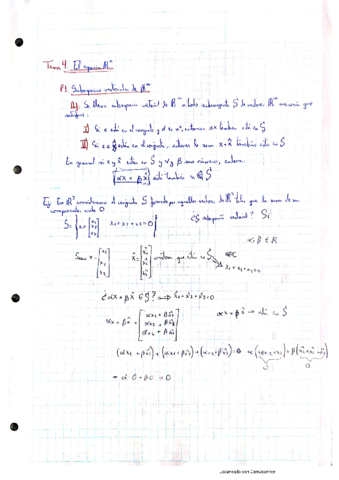 Tema 4. El espacio ℝⁿ
P1. Subespacios vectoriales de ℝⁿ
Def: Se llama subespacio vectorial de ℝⁿ a todo subconjunto S de vectores ℝⁿ que
I) Si x está en el conjunto y α es nº, entonces αx también está en S
II) Si x e x̂ están en el conjunto, entonces la suma x+x̂ también está en S
En general si x y x̂ están en S y α y β son números, entonces
αx + βx̂ está también en S
Ej: En ℝ³ consideramos el conjunto S formado por aquellos vectores de ℝ³ tales que la suma de sus
componentes vale 0
S = { x = [x₁ x₂ x₃] x₁+x₂+x₃=0 } ¿S subespacio vectorial? Sí
α, β ∈ ℝ
Sean x = [x₁ x₂ x₃] x̂ = [x̂₁ x̂₂ x̂₃] vectores que están en S
x₁+x₂+x₃=0
¿αx + βx̂ ∈ S? ⟹ x̂₁+x̂₂+x̂₃=0
αx + βx̂ = [αx₁ + βx̂₁ αx₂ + βx̂₂ αx₃ + βx̂₃] αx + βx̂ → está en S
(αx₁ + βx̂₁) + (αx₂ + βx̂₂) + (αx₃ + βx̂₃) = α(x₁+x₂+x₃) + β(x̂₁+x̂₂+x̂₃)
0 0
= α·0 + β·0 = 0
Escaneado con CamScanner